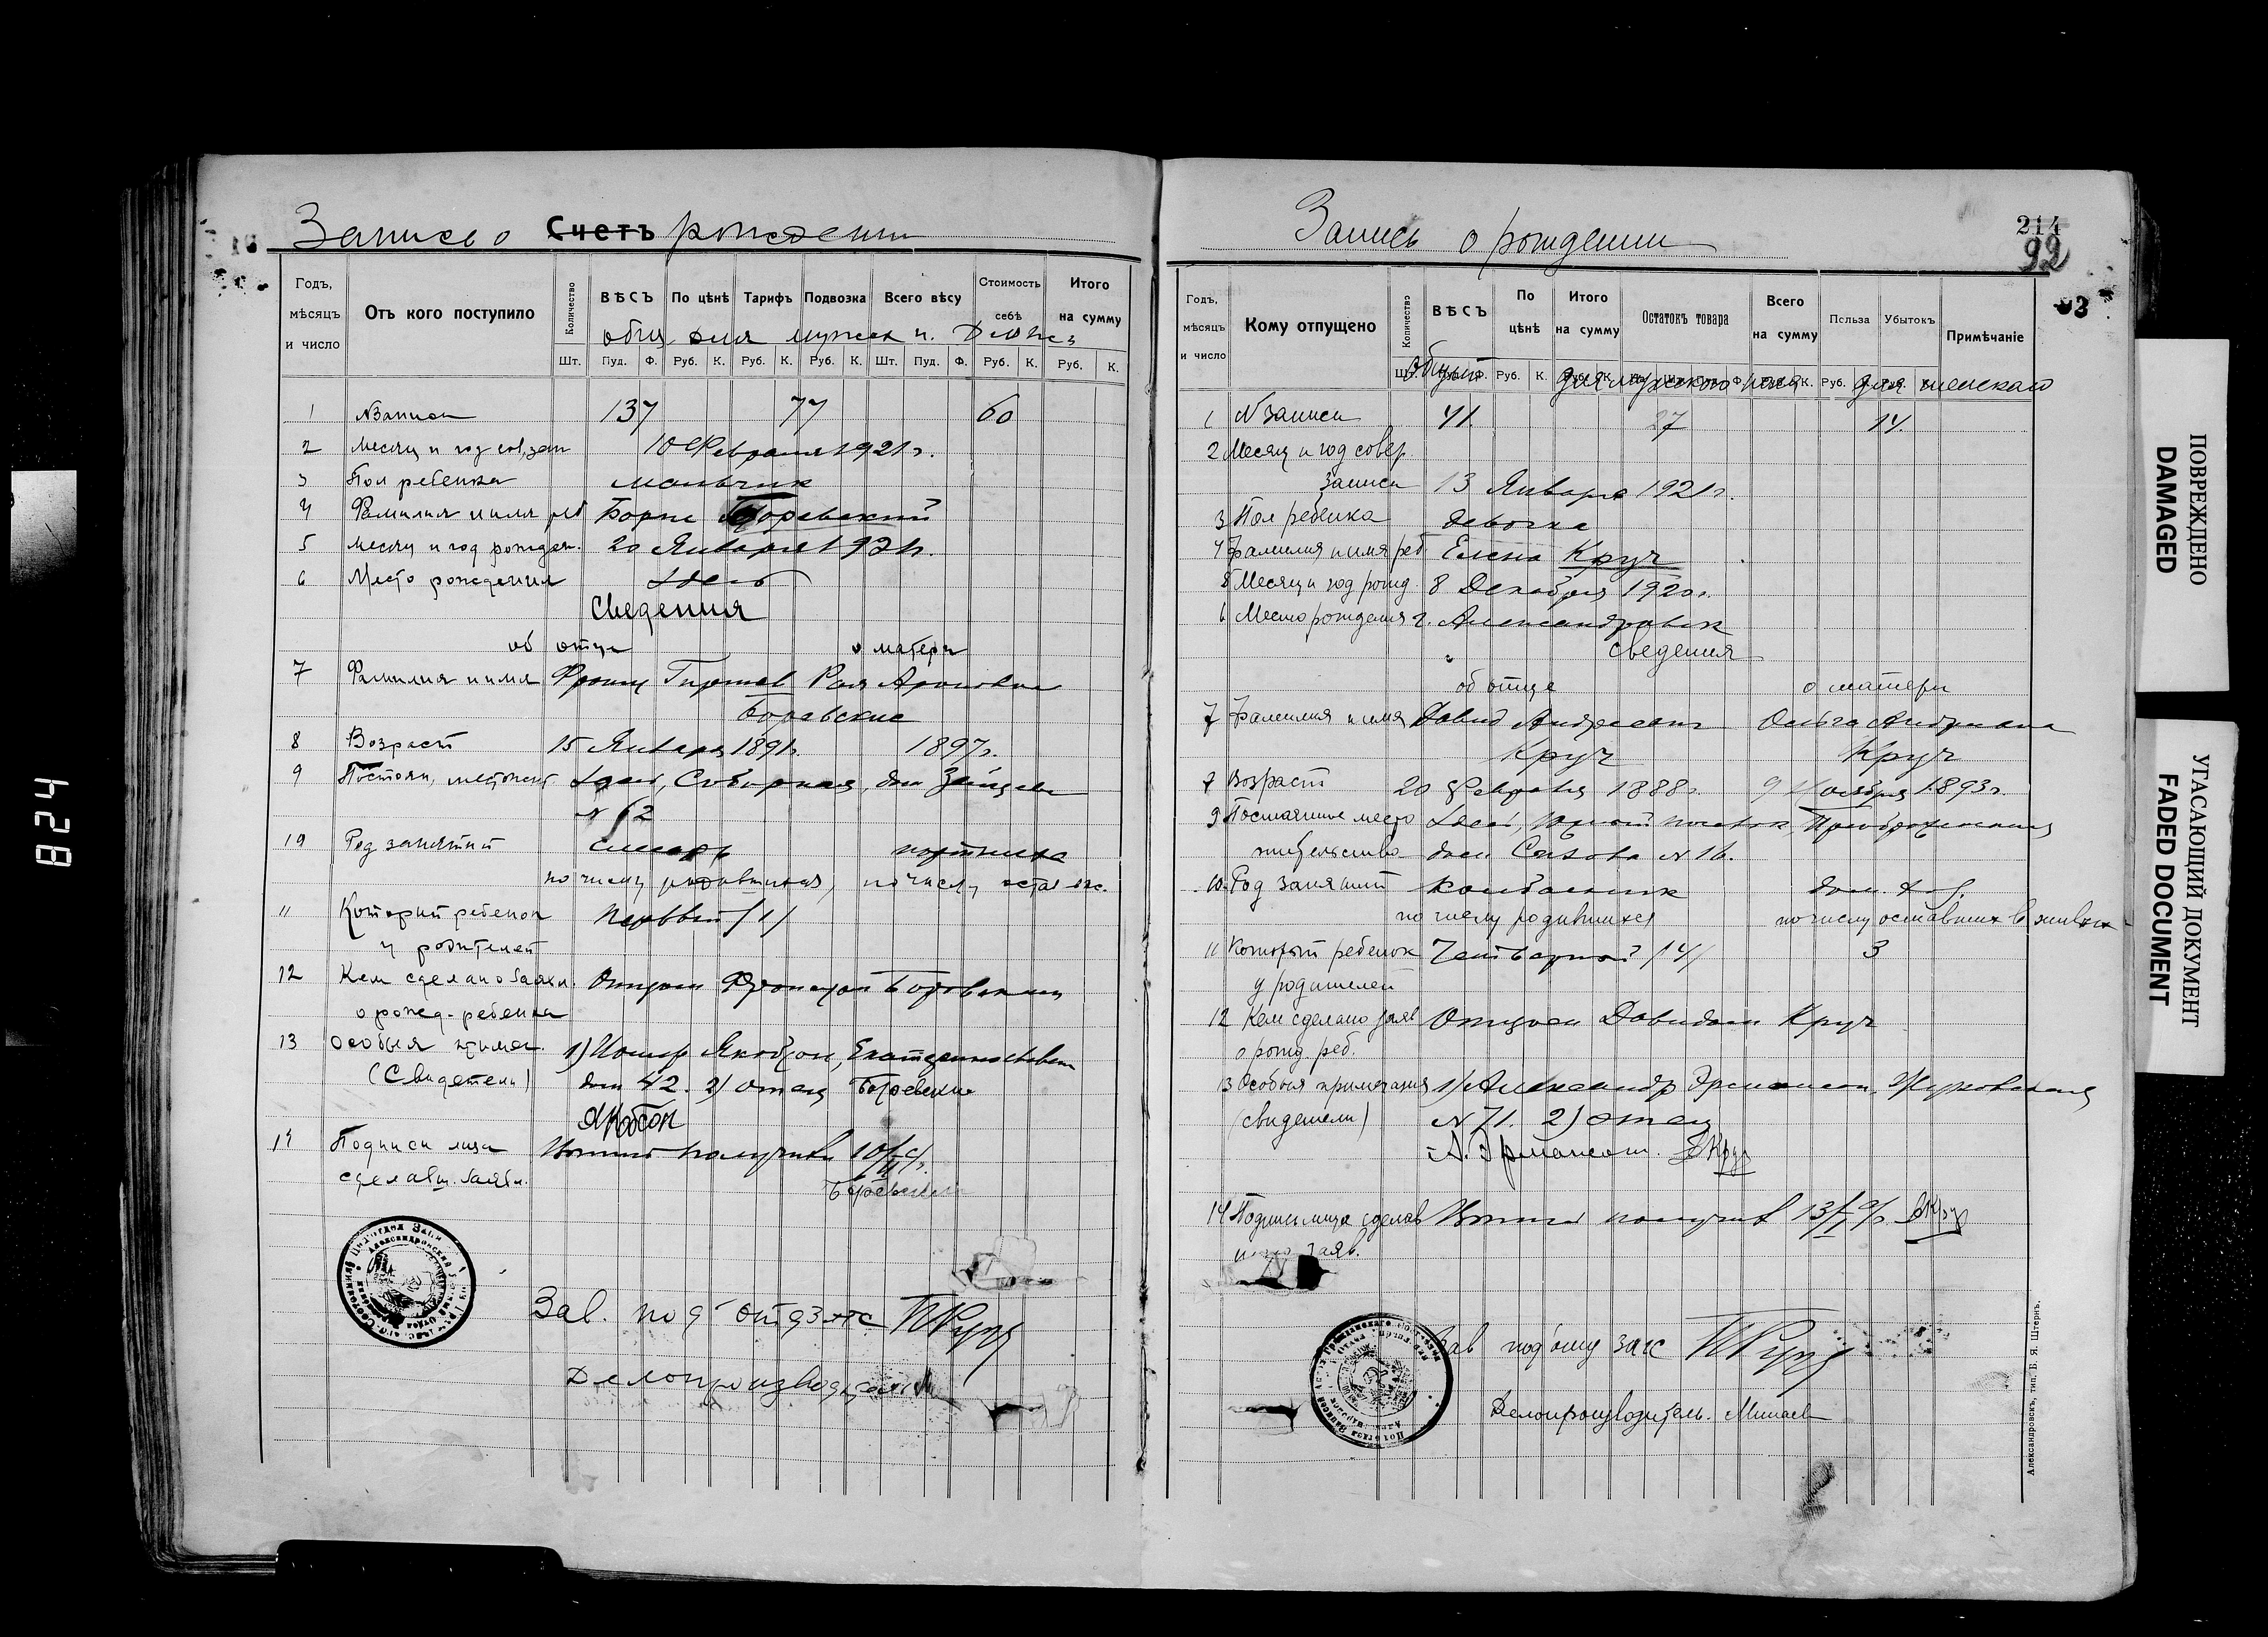 Запись о Счетъ рождении
Годъ, мѣсяцъ и число
Отъ кого поступило
Количество
ВѢСЪ
По цѣнѣ
Тарифъ
Подвозка
Всего вѣсу
Стоимость себѣ
Итого на сумму
общ. для мужск.
Шт. Пуд. Ф. Руб. К. Руб. К. Руб. К. Шт. Пуд. Ф. Руб. К. Руб. К.
1 № записи 137 77 60
2 Месяц и год сов. зап 10 Февраля 1921 г.
3 Пол ребенка мальчик
4 Фамилия и имя реб Борис Боревский
5 Месяц и год рожден. 20 Января 1921 г.
6 Место рождения здесь
Сведения
об отце о матери
7 Фамилия и имя Франц Рая
Боревские
8 Возраст 15 Января 1891 г. 1897 г.
9 Постоян. местожит. Здесь, Соборная, дом
№ 62
10 Род занятий слесарь
по числу родившихся, по числу остав.
11 Который ребенок Первый /1/
у родителей
12 Кем сделано заявл. Отцом Францом Боревским
о рожд. ребенка
13 Особыя примеч. 1)
(Свидетели) дом 42. 2) отец Боревский
Якобсон
14 Подписи лица получил 10/II с/г.
сделавш. заявл. Боревский
Зав. под отд загс
Делопроизводитель
Запись о рождении
214
92
93
Годъ, мѣсяцъ и число
Кому отпущено
Количество
ВѢСЪ
По цѣнѣ
Итого на сумму
Остатокъ товара
Всего на сумму
Польза
Убытокъ
Примѣчаніе
общий для мужского пола для женскаго
1 № записи 41. 27 14.
2 Месяц и год совер.
записи 13 Января 1921 г.
3 Пол ребенка девочка
4 Фамилия и имя реб Елена Круч
5 Месяц и год рожд. 8 Декабря 1920 г.
6 Место рождения г. Александровск
сведения
об отце о матери
7 Фамилия и имя Давид Андреевич Ольга
Круч Круч
7 Возраст 20 Февраля 1888 г. 9 Ноября 1893 г.
9 Постоянное место Здесь, Южный поселок
жительство дом № 16.
10 Род занятий дом. хоз.
по числу родившихся по числу оставших в живых
11 Который ребенок Четвертый /4/ 3
у родителей
12 Кем сделано заяв Отцом Давидом Круч
о рожд. реб.
13 Особыя примечания 1) Александр Жуковская
(свидетели) № 71. 2) отец
А. ДКруч
14 Подпись лица сделав получил 13/I с/г. ДКруч
заяв.
Зав под отд загс
Делопроизводитель. Минаев
Александровскъ, тип. Б. Я. Штернъ.
ПОВРЕЖДЕНО
DAMAGED
УГАСАЮЩИЙ ДОКУМЕНТ
FADED DOCUMENT
824